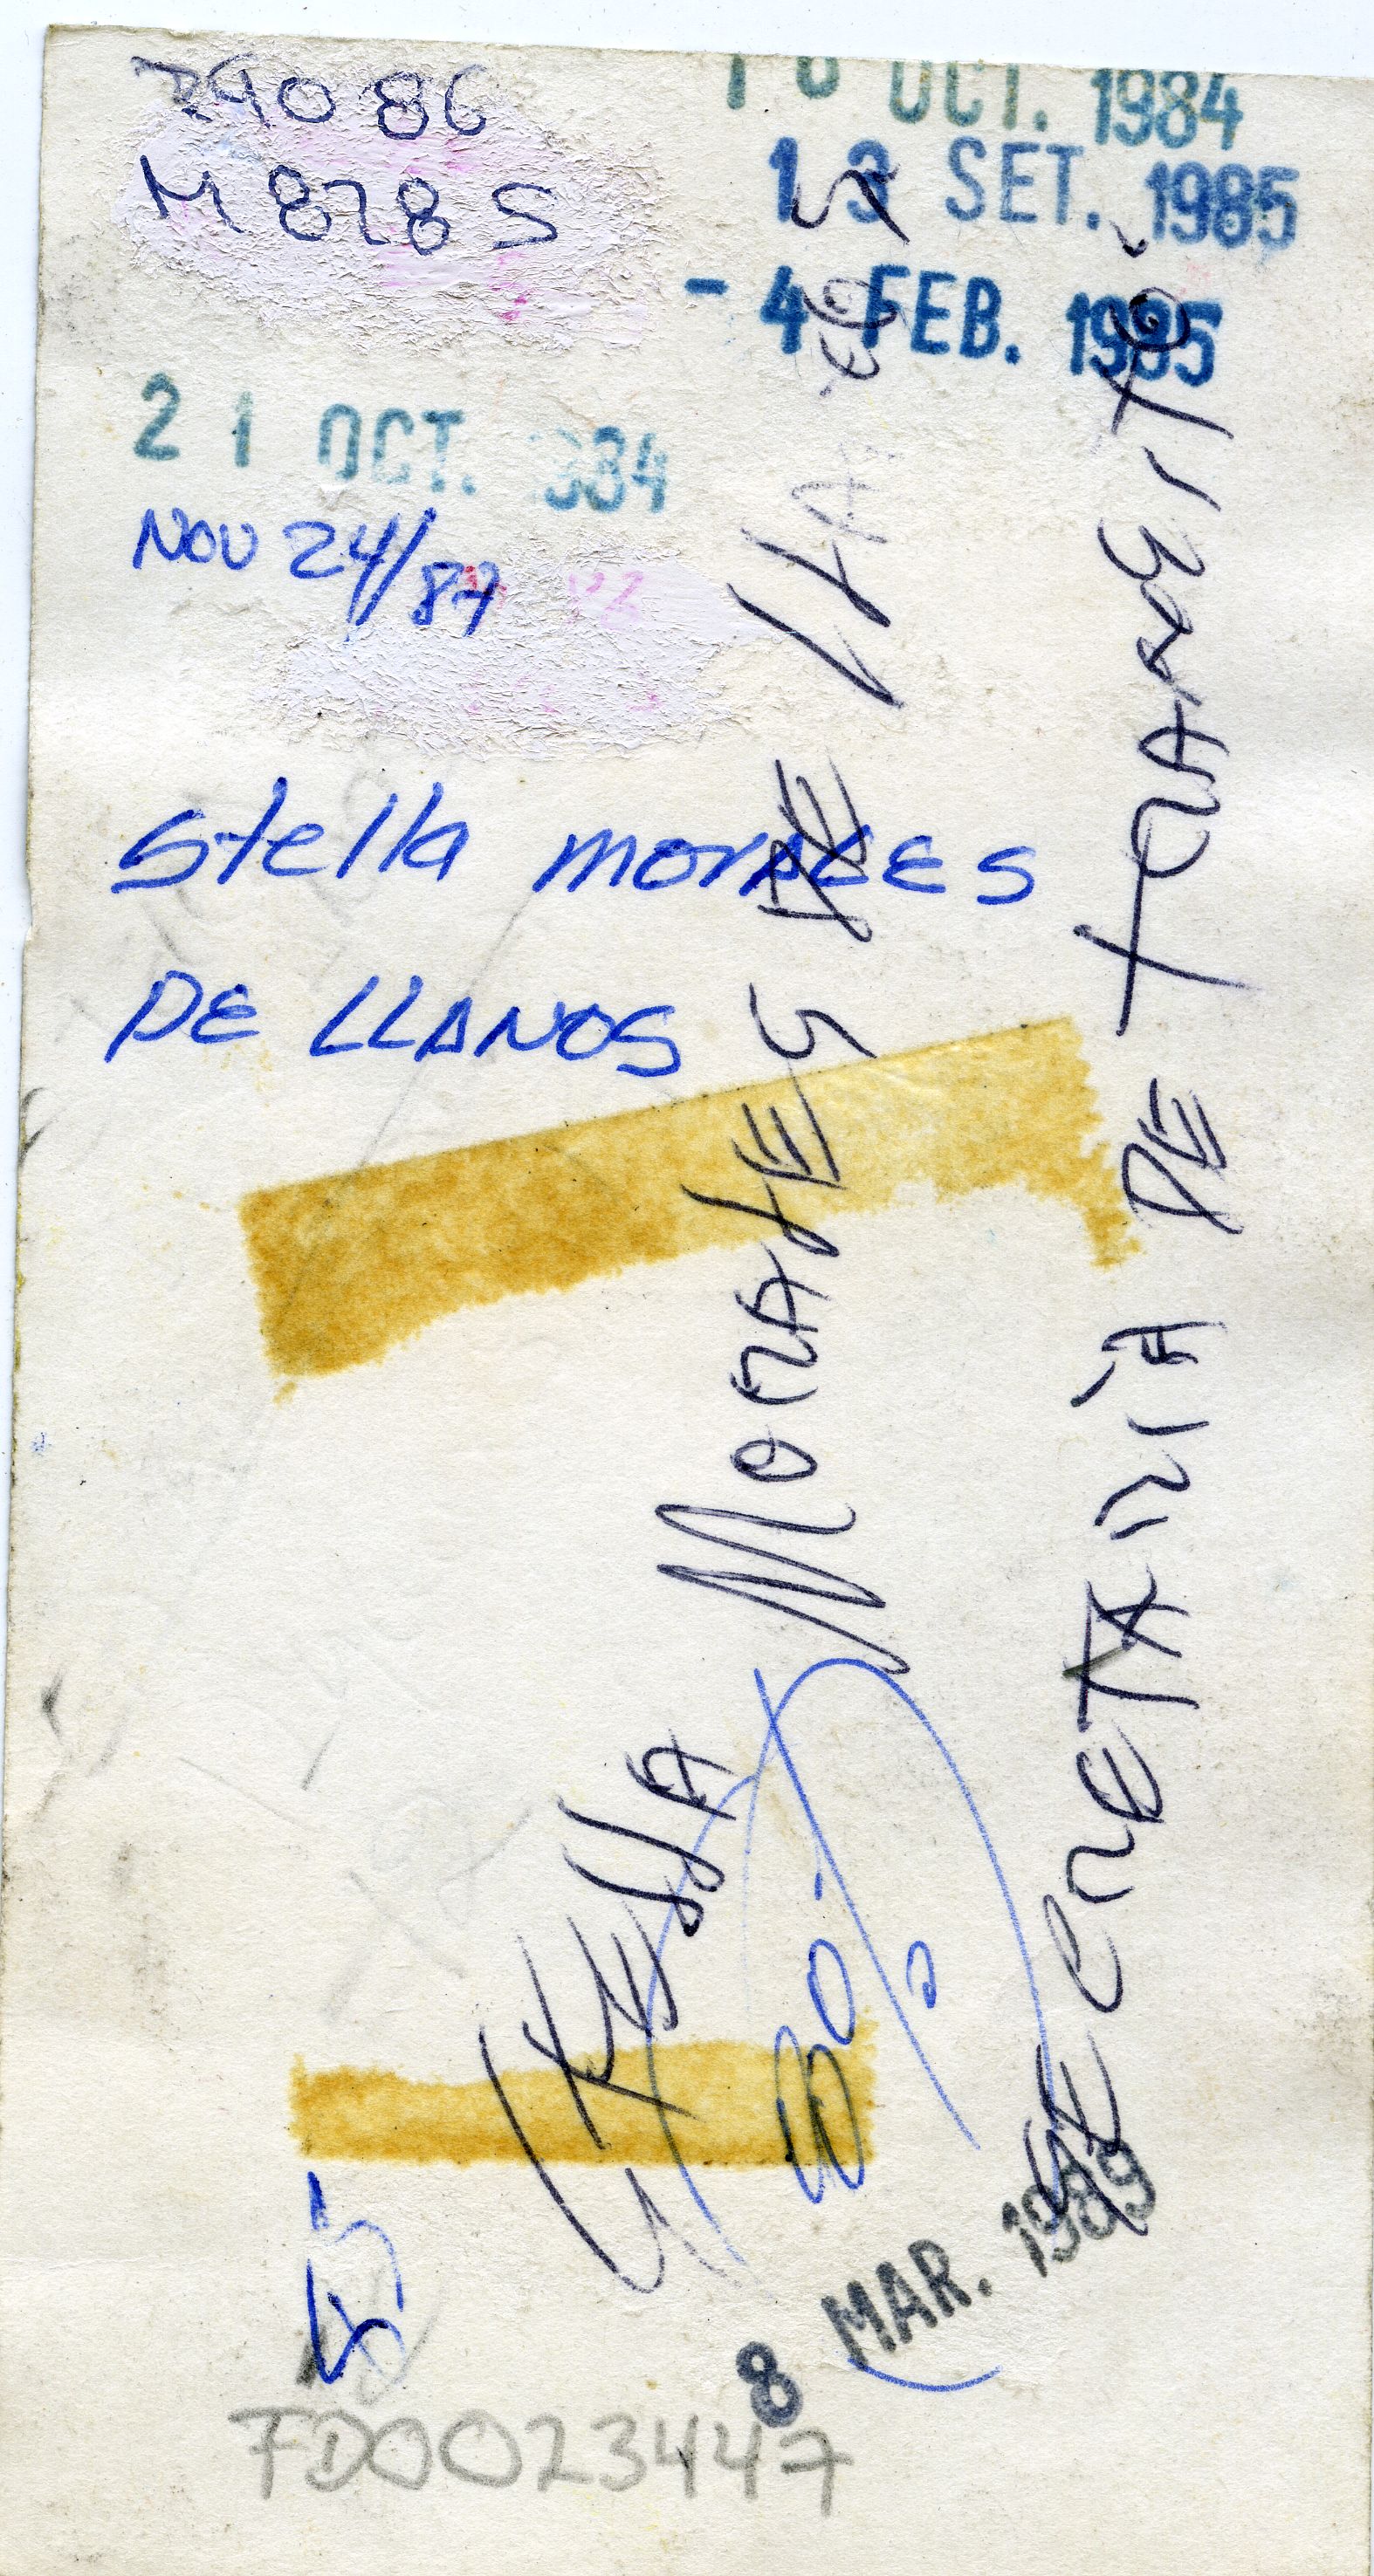 790 86
M 828 S
OCT. 1984
13 SET. 1985
- 4 FEB. 1985
21 OCT. 984
NOV 24/87
Stella morales
DE LLANOS
STELLA MORALES DE LLANOS
SECRETARIA DE TRANSITO
BO
8 MAR. 1989
FD0023447